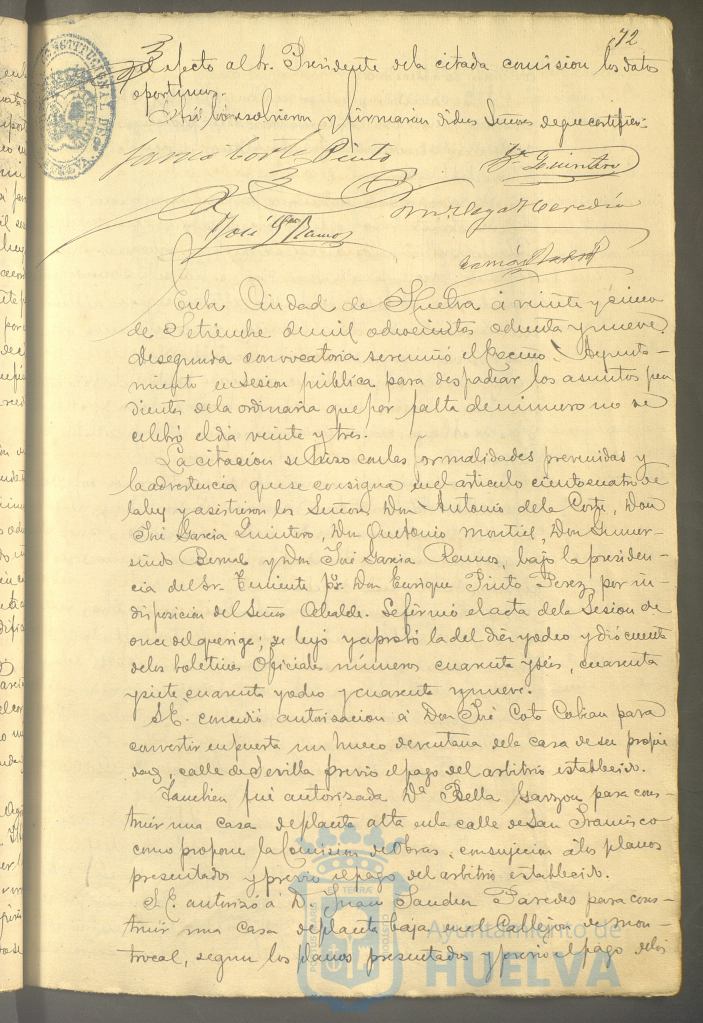 72
al efecto al Sr. Presidente de la citada comision los datos
oportunos.
Asi lo resolvieron y firmarán dichos Señores de que certifico.
Corte Pinto
Quintero
José Gª Ramos
En la Ciudad de Huelva á veinte y cinco
de Setiembre de mil ochocientos ochenta y nueve.
De segunda convocatoria se reunió el Excmo. Ayunta-
miento en sesion pública para despachar los asuntos pen
dientes de la ordinaria que por falta de número no se
celebró el dia veinte y tres.
La citacion se hizo con las formalidades prevenidas y
la advertencia que se consigna en el articulo ciento cuatro de
la ley y asistieron los Señores Don Antonio de la Corte, Don
José Garcia Quintero, Don Antonio Montiel, Don Gumer-
sindo Bernal y Don José Garcia Ramos, bajo la presiden-
cia del Sr. Teniente pº. Don Enrique Pinto Perez, por in-
disposicion del Señor Alcalde. Se firmó el acta de la sesion de
once del que rige; se leyó y aprobó la del dieciocho y dió cuenta
de los boletines Oficiales números cuarenta y seis, cuarenta
y siete cuarenta y ocho y cuarenta y nueve.
S.E. concedió autorizacion á Don José Coto Cobian para
convertir en puerta un hueco de ventana de la casa de su propie
dad, calle de Sevilla previo el pago del arbitrio establecido.
Tambien fué autorizada Dª Bella Garzon para cons-
truir una casa de planta alta en la calle de San Francisco
como propone la Comision de Obras, con sujecion á los planos
presentados y previo el pago del arbitrio establecido.
S.E. autorizó á D. Juan Sanchez Paredes para cons-
truir una casa de planta baja en el Callejon de Mon-
troca, segun los planos presentados y previo el pago de los
Ayuntamiento de
HUELVA